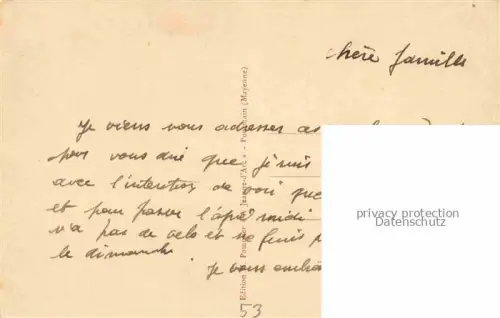 chère famille
je viens vous adresser
pour vous dire que je suis
avec l'intention de voir que
et pour passer l'apré midi
n'a pas de velo et ne
le dimanche.
je vous
Edition "Jeanne-d'Arc" - (Mayenne)
53
privacy protection
Datenschutz